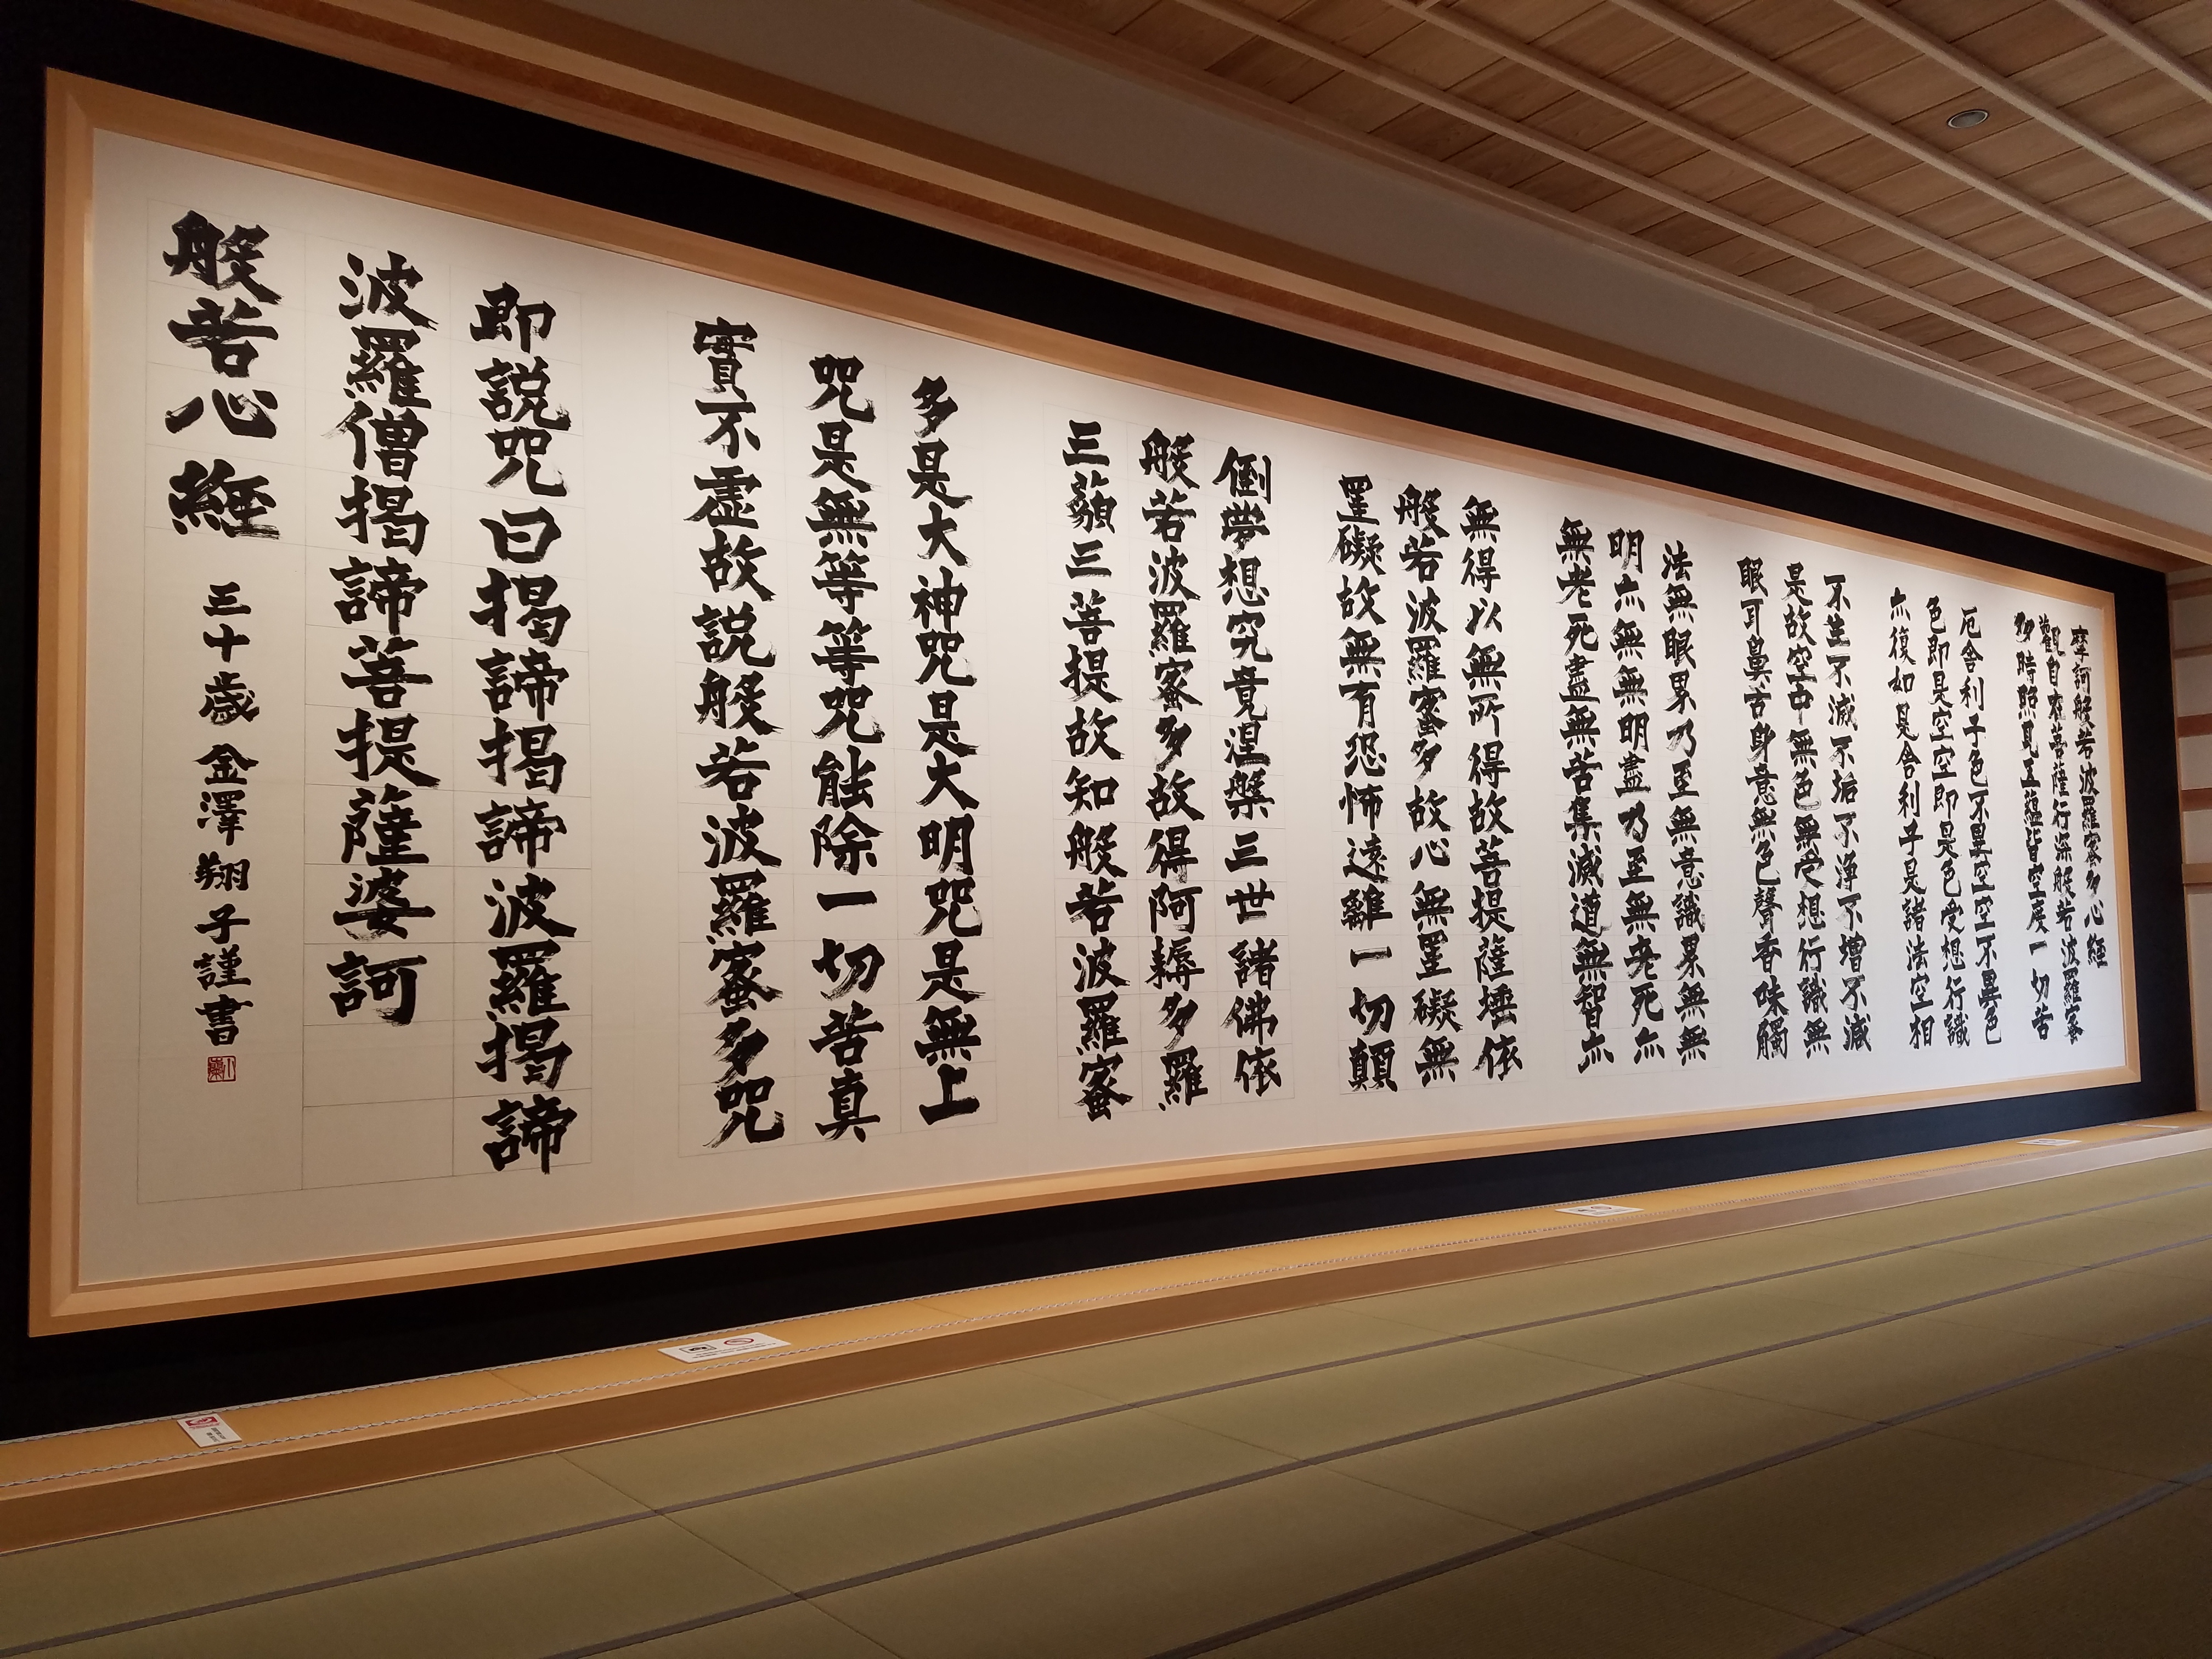 摩訶般若波羅蜜多心経
觀自在菩薩行深般若波羅蜜
多時照見五蘊皆空度一切苦
厄舎利子色不異空空不異色
色即是空空即是色受想行識
亦復如是舎利子是諸法空相
不生不滅不垢不浄不増不減
是故空中無色無受想行識無
眼耳鼻舌身意無色聲香味觸
法無眼界乃至無意識界無無
明亦無無明盡乃至無老死亦
無老死盡無苦集滅道無智亦
無得以無所得故菩提薩埵依
般若波羅蜜多故心無罣礙無
罣礙故無有恐怖遠離一切顛
倒夢想究竟涅槃三世諸佛依
般若波羅蜜多故得阿耨多羅
三藐三菩提故知般若波羅蜜
多是大神咒是大明咒是無上
咒是無等等咒能除一切苦真
實不虚故説般若波羅蜜多咒
即説咒曰揭諦揭諦波羅揭諦
波羅僧揭諦菩提薩婆訶
般若心經
三十歳 金澤翔子謹書